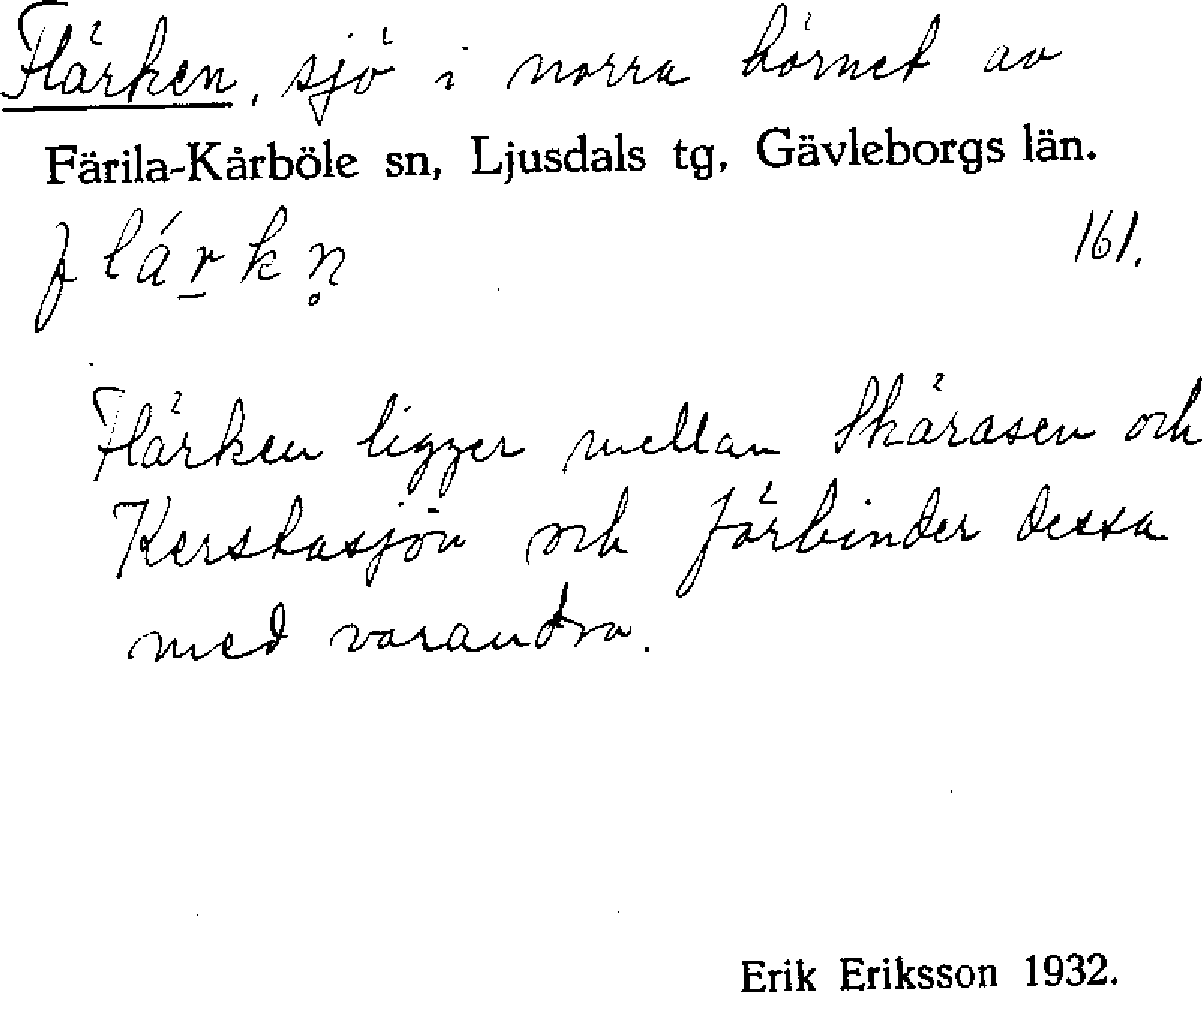 Flärken, sjö i norra hörnet av
Färila-Kårböle sn, Ljusdals tg, Gävleborgs län.
flárkn̥ 161.
Flärken ligger mellan Skärasen och
Kerstasjön och förbinder dessa
med varandra.
Erik Eriksson 1932.